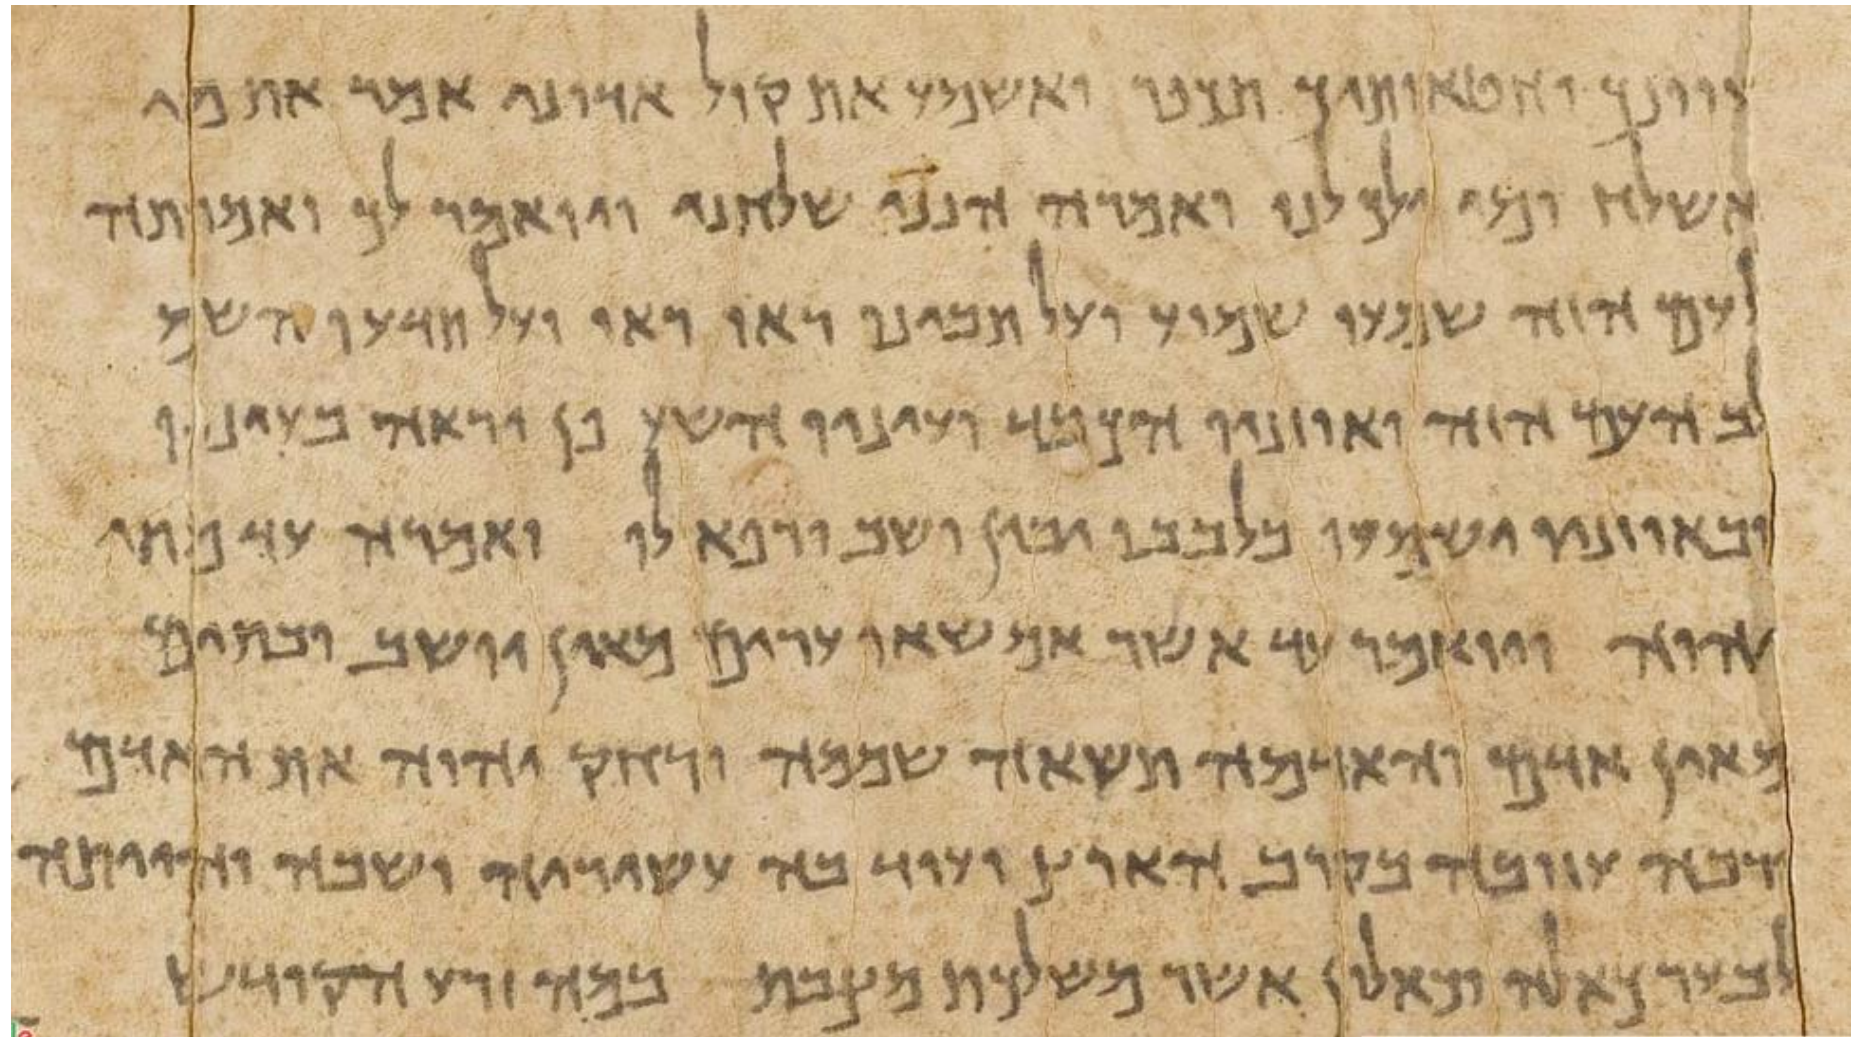 עוונך וחטאותיך תכפר ואשמע את קול אדוני אמר את מי
אשלח ומי ילך לנו ואמרה הנני שלחני ויואמר לך ואמרתה
לעם הזה שמעו שמוע ועל תבינו ראו ראו ועל תדעו השמ
לב העם הזה ואוזניו הכבד ועיניו השע פן יראה בעיניו
ובאוזניו ישמעו בלבבו יבין ושב ורפא לו ואמרה עד מתי
יהוה ויואמר עד אשר אם שאו ערים מאין יושב ובתים
מאין אדם והאדמה תשאה שממה ורחק יהוה את האדם
ורבה עזובה בקרב הארץ ועוד בה עשיריה ושבה והייתה
לבער כאלה וכאלון אשר משלכת מצבת במה זרע הקודש